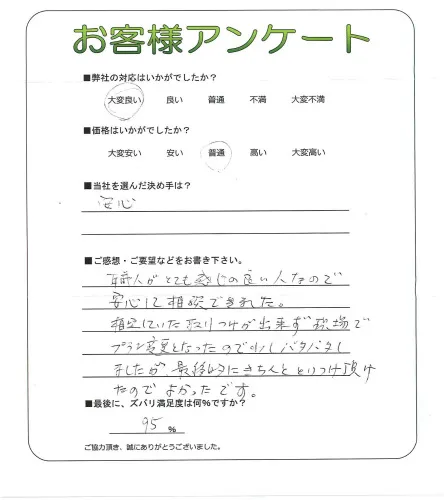 お客様アンケート
■弊社の対応はいかがでしたか？
大変良い 良い 普通 不満 大変不満
■価格はいかがでしたか？
大変安い 安い 普通 高い 大変高い
■当社を選んだ決め手は？
安心
■ご感想・ご要望などをお書き下さい。
職人がとても感じの良い人なので
安心して相談できました。
想定していた取りつけが出来ず現場で
プラン変更となったので少しバタバタし
ましたが、最後的にきちんととりつけ頂け
たのでよかったです。
■最後に、ズバリ満足度は何%ですか？
95 %
ご協力頂き、誠にありがとうございました。